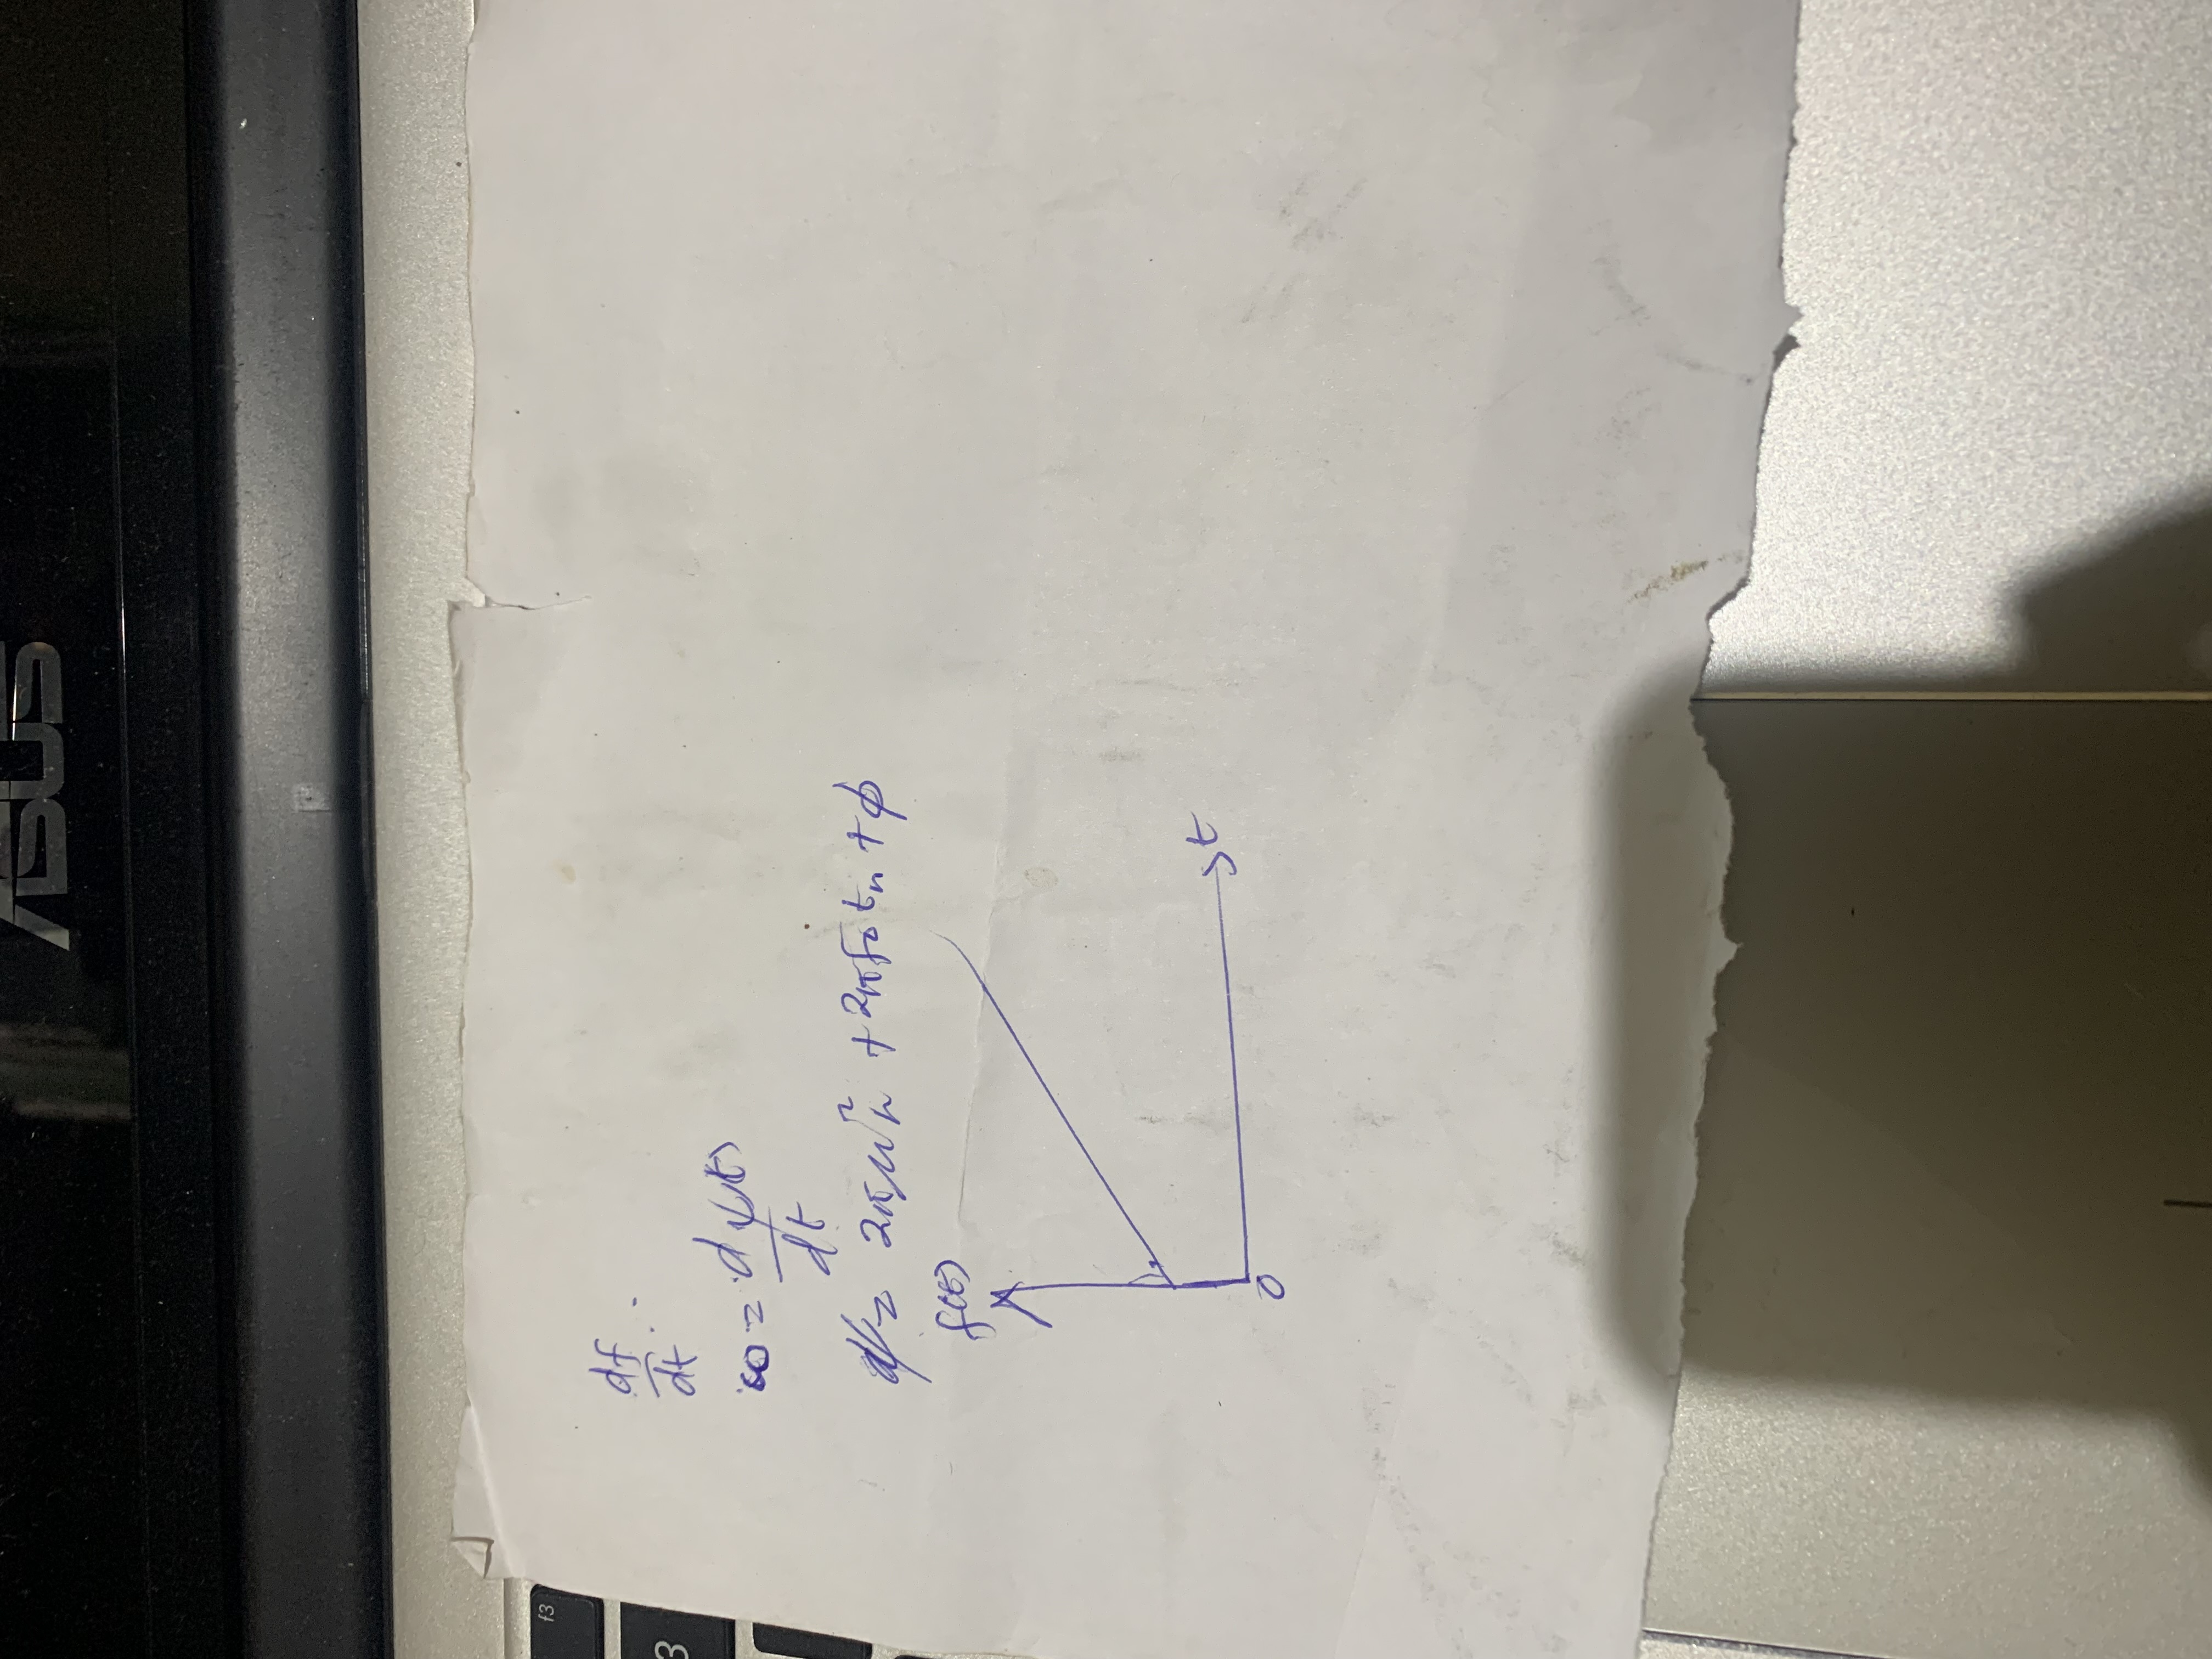 ASUS
f3
3
df
dt
ω = dψ(t)
dt
ψ = 2πμt²n + 2πf0tn + φ
f(t)
t
0